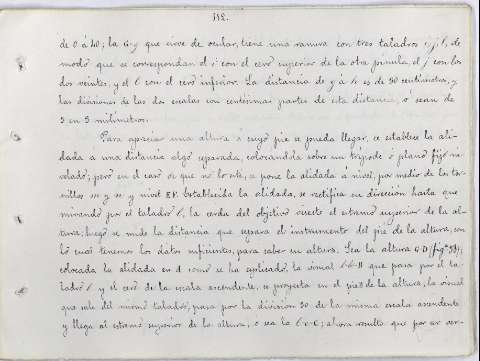 112.
de 0 á 40; la G-y que sirve de ocular, tiene una ranura con tres taladros i, j, l, de
modo que se correspondan el i con el cero superior de la otra pínula, el j con los
dos veintes, y el l con el cero inferior. La distancia de g á h es de 50 centímetros, y
las divisiones de las dos escalas son centésimas partes de esta distancia, ó sean de
5 en 5 milímetros.
Para apreciar una altura á cuyo pie se pueda llegar, se establece la ali-
dada a una distancia algo separada, colocandola sobre un trípode ó plano fijo ni-
velado; pero en el caso de que no lo esté, se pone la alidada á nivel, por medio de los tor-
nillos m y n y nivel EF. Establecida la alidada, se rectifica su dirección hasta que
mirando por el taladro l, la cerda del objetivo visite el estremo superior de la al-
tura; luego se mide la distancia que separa el instrumento del pie de la altura, con
lo cual tenemos los datos suficientes, para saber su altura. Sea la altura C-D (figª 53);
colocada la alidada en A como se ha esplicado, la visual que pasa por el ta-
ladro l y el cero de la escala ascendente, se proyecta en el pie D de la altura, la visual
que sale del mismo taladro, pasa por la division 30 de la misma escala ascendente
y llega al estremo superior de la altura, ó sea la l-c-C; ahora resulta que por ser ver-